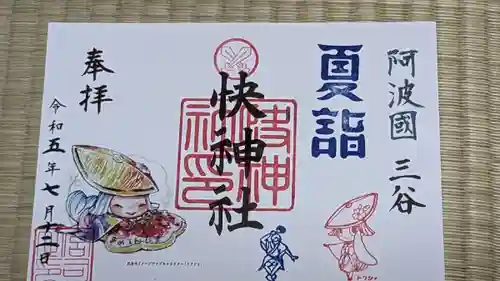 阿波國 三谷
夏詣
快神社
奉拝
令和五年七月十二日